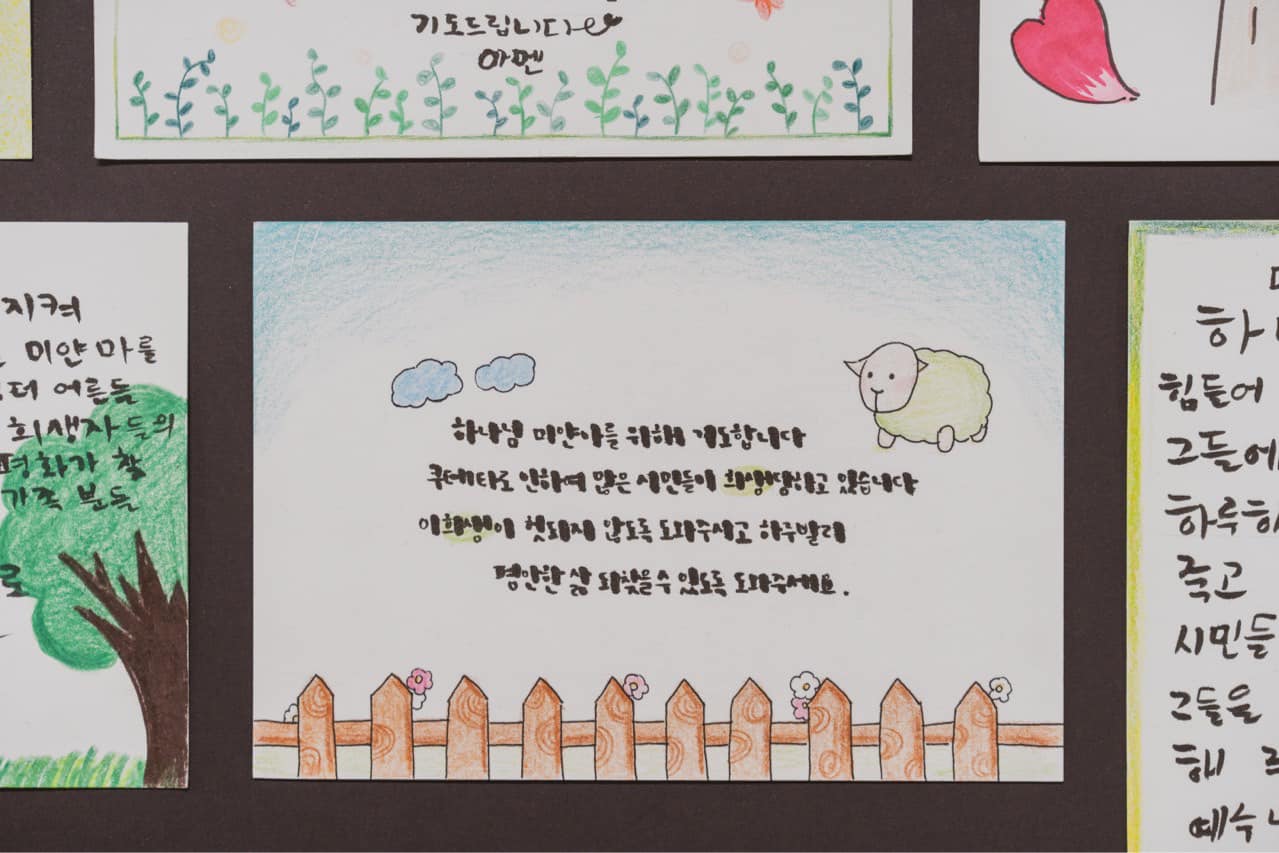 기도드립니다
아멘
지켜
미얀마를
어른들
희생자들의
평화가 찰
가족 분들
로
하나님 미얀마를 위해 기도합니다
쿠데타로 인하여 많은 시민들이 희생당하고 있습니다
이 희생이 헛되지 않도록 도와주시고 하루빨리
평안한 삶 되찾을 수 있도록 도와주세요.
힘들어
그들에
하루
죽고
시민들
그들을
해
예수